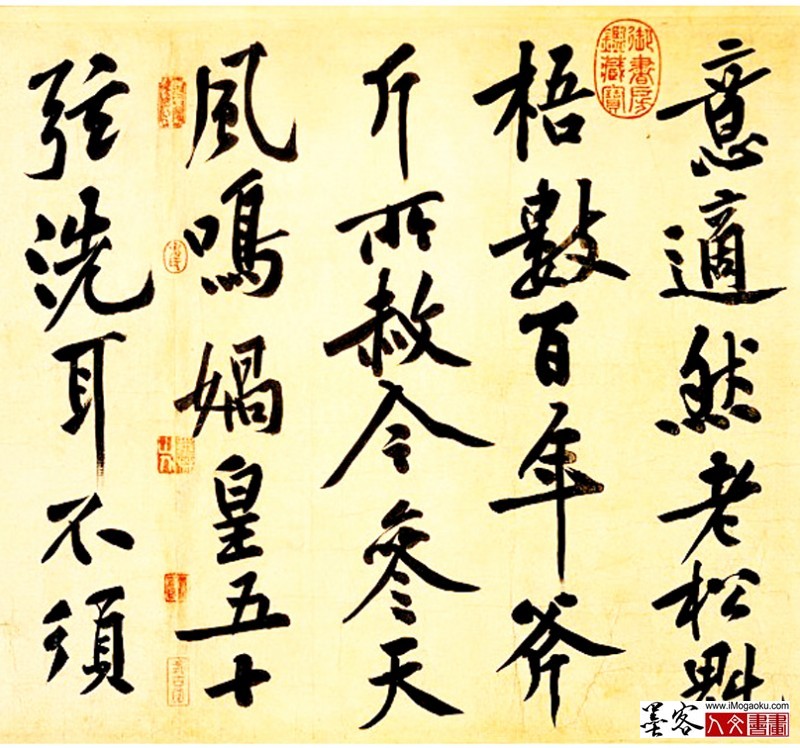 意適然老松魁
梧數百年斧
斤所赦今參天
風鳴媧皇五十
弦洗耳不須
御書房
鑑藏寶
墨客
www.iMogaoku.com
人文書畫